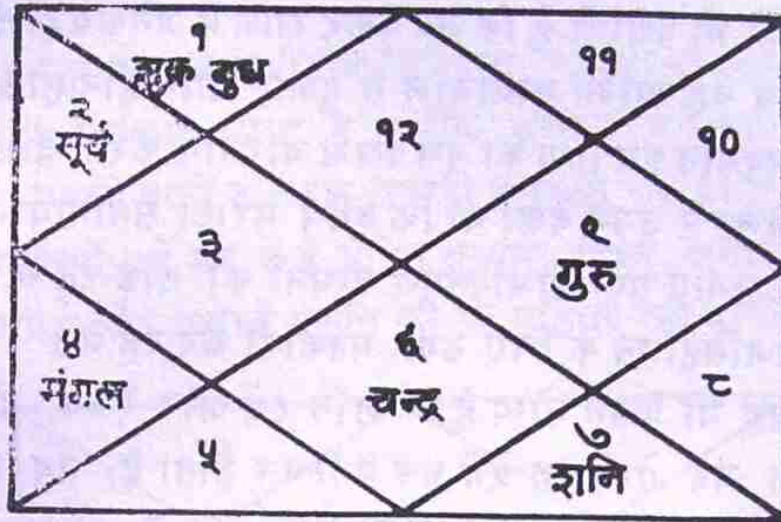 १
शुक्र बुध
११
२
सूर्य
१२
१०
३
९
गुरु
४
मंगल
६
चन्द्र
८
५
७
शनि